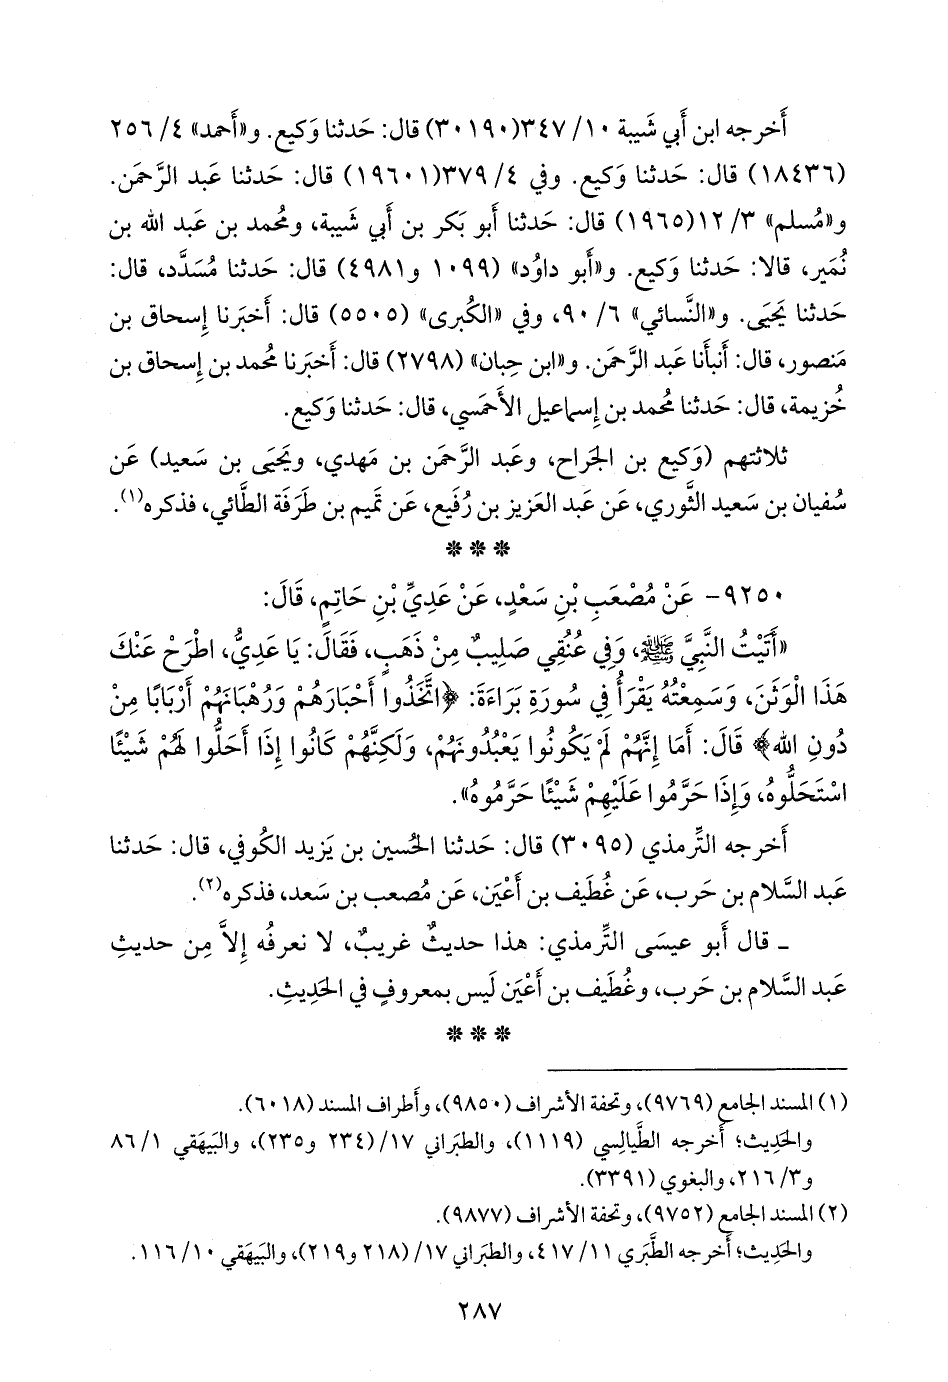 أَخرجه ابن أَبي شَيبة ١٠/ ٣٤٧(٣٠١٩٠) قال: حَدثنا وَكيع. و«أَحمد» ٤/ ٢٥٦
(١٨٤٣٦) قال: حَدثنا وَكيع. وفي ٤/ ٣٧٩(١٩٦٠١) قال: حَدثنا عَبد الرَّحمَن.
و«مُسلم» ٣/ ١٢(١٩٦٥) قال: حَدثنا أَبو بَكر بن أَبي شَيبة، ومُحمد بن عَبد الله بن
نُمَير، قالا: حَدثنا وَكيع. و«أَبو داوُد» (١٠٩٩ و٤٩٨١) قال: حَدثنا مُسَدَّد، قال:
حَدثنا يَحيَى. و«النَّسائي» ٦/ ٩٠، وفي «الكُبرى» (٥٥٠٥) قال: أَخبَرنا إِسحاق بن
مَنصور، قال: أَنبأَنا عَبد الرَّحمَن. و«ابن حِبان» (٢٧٩٨) قال: أَخبَرنا مُحمد بن إِسحاق بن
خُزيمة، قال: حَدثنا مُحمد بن إِسماعيل الأَحمَسي، قال: حَدثنا وَكيع.
ثلاثتهم (وَكيع بن الجَراح، وعَبد الرَّحمَن بن مَهدي، ويَحيَى بن سَعيد) عَن
سُفيان بن سَعيد الثَّوري، عَن عَبد العَزيز بن رُفَيع، عَن تَميم بن طَرَفَة الطَّائي، فذكره(١).
***
٩٢٥٠- عَنْ مُصْعَبِ بْنِ سَعْدٍ، عَنْ عَدِيِّ بْنِ حَاتِمٍ، قَالَ:
«أَتَيْتُ النَّبِيَّ ﷺ، وَفِي عُنُقِي صَلِيبٌ مِنْ ذَهَبٍ، فَقَالَ: يَا عَدِيُّ، اطْرَحْ عَنْكَ
هَذَا الْوَثَنَ، وَسَمِعْتُهُ يَقْرَأُ فِي سُورَةِ بَرَاءَةَ: ﴿اتَّخَذُوا أَحْبَارَهُمْ وَرُهْبَانَهُمْ أَرْبَابًا مِنْ
دُونِ الله﴾ قَالَ: أَمَا إِنَّهُمْ لَمْ يَكُونُوا يَعْبُدُونَهُمْ، وَلَكِنَّهُمْ كَانُوا إِذَا أَحَلُّوا لَهُمْ شَيْئًا
اسْتَحَلُّوهُ، وَإِذَا حَرَّمُوا عَلَيْهِمْ شَيْئًا حَرَّمُوهُ».
أَخرجه التِّرمذي (٣٠٩٥) قال: حَدثنا الحُسين بن يَزيد الكُوفي، قال: حَدثنا
عَبد السَّلام بن حَرب، عَن غُطَيف بن أَعْيَن، عَن مُصعب بن سَعد، فذكره(٢).
ـ قال أَبو عيسَى التِّرمذي: هذا حديثٌ غريبٌ، لا نعرفُه إِلاَّ مِن حديثِ
عَبد السَّلام بن حَرب، وغُطَيف بن أَعْيَن لَيس بمعروفٍ في الحَدِيثِ.
***
(١) المسند الجامع (٩٧٦٩)، وتحفة الأشراف (٩٨٥٠)، وأَطراف المسند (٦٠١٨).
والحَدِيث؛ أَخرجه الطَّيالِسي (١١١٩)، والطبَراني ١٧/ (٢٣٤ و٢٣٥)، والبَيهَقي ١/ ٨٦
و٣/ ٢١٦، والبغوي (٣٣٩١).
(٢) المسند الجامع (٩٧٥٢)، وتحفة الأشراف (٩٨٧٧).
والحَدِيث؛ أَخرجه الطَّبَري ١١/ ٤١٧، والطبَراني ١٧/ (٢١٨ و٢١٩)، والبَيهَقي ١٠/ ١١٦.
٢٨٧